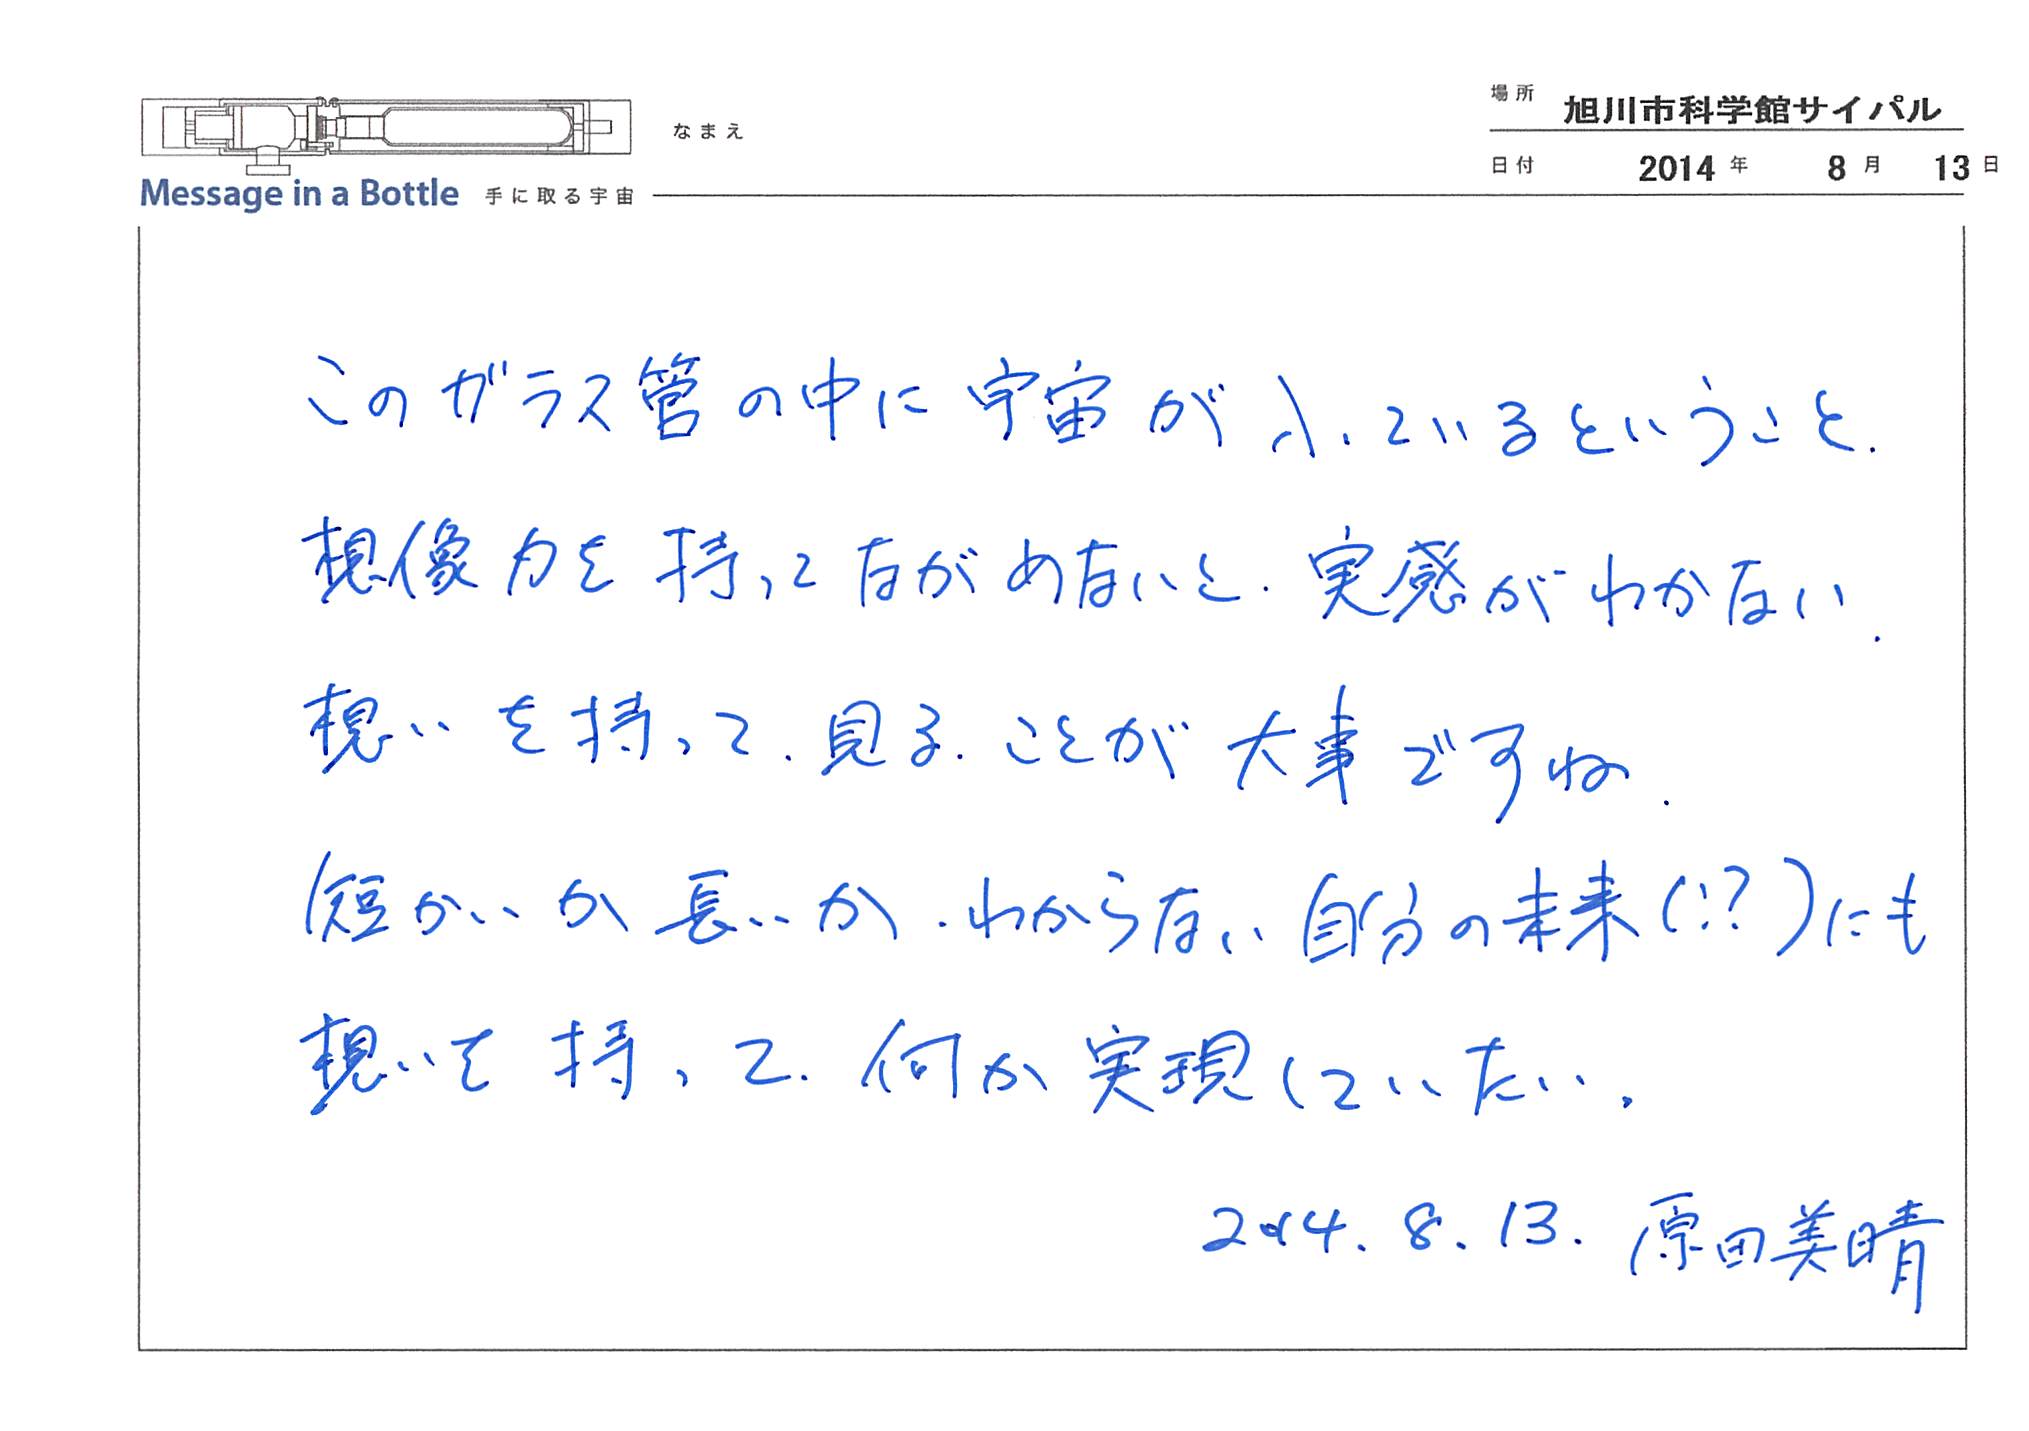 場所 旭川市科学館サイパル
なまえ
日付 2014 年 8 月 13 日
Message in a Bottle 手に取る宇宙
このガラス管の中に宇宙が入っているということ.
想像力を持ってながめないと.実感がわかない.
想いを持って.見る.ことが大事ですね.
短かいか長いか.わからない自分の未来(!?)にも
想いを持って.何か実現していたい.
2014.8.13.原田美晴